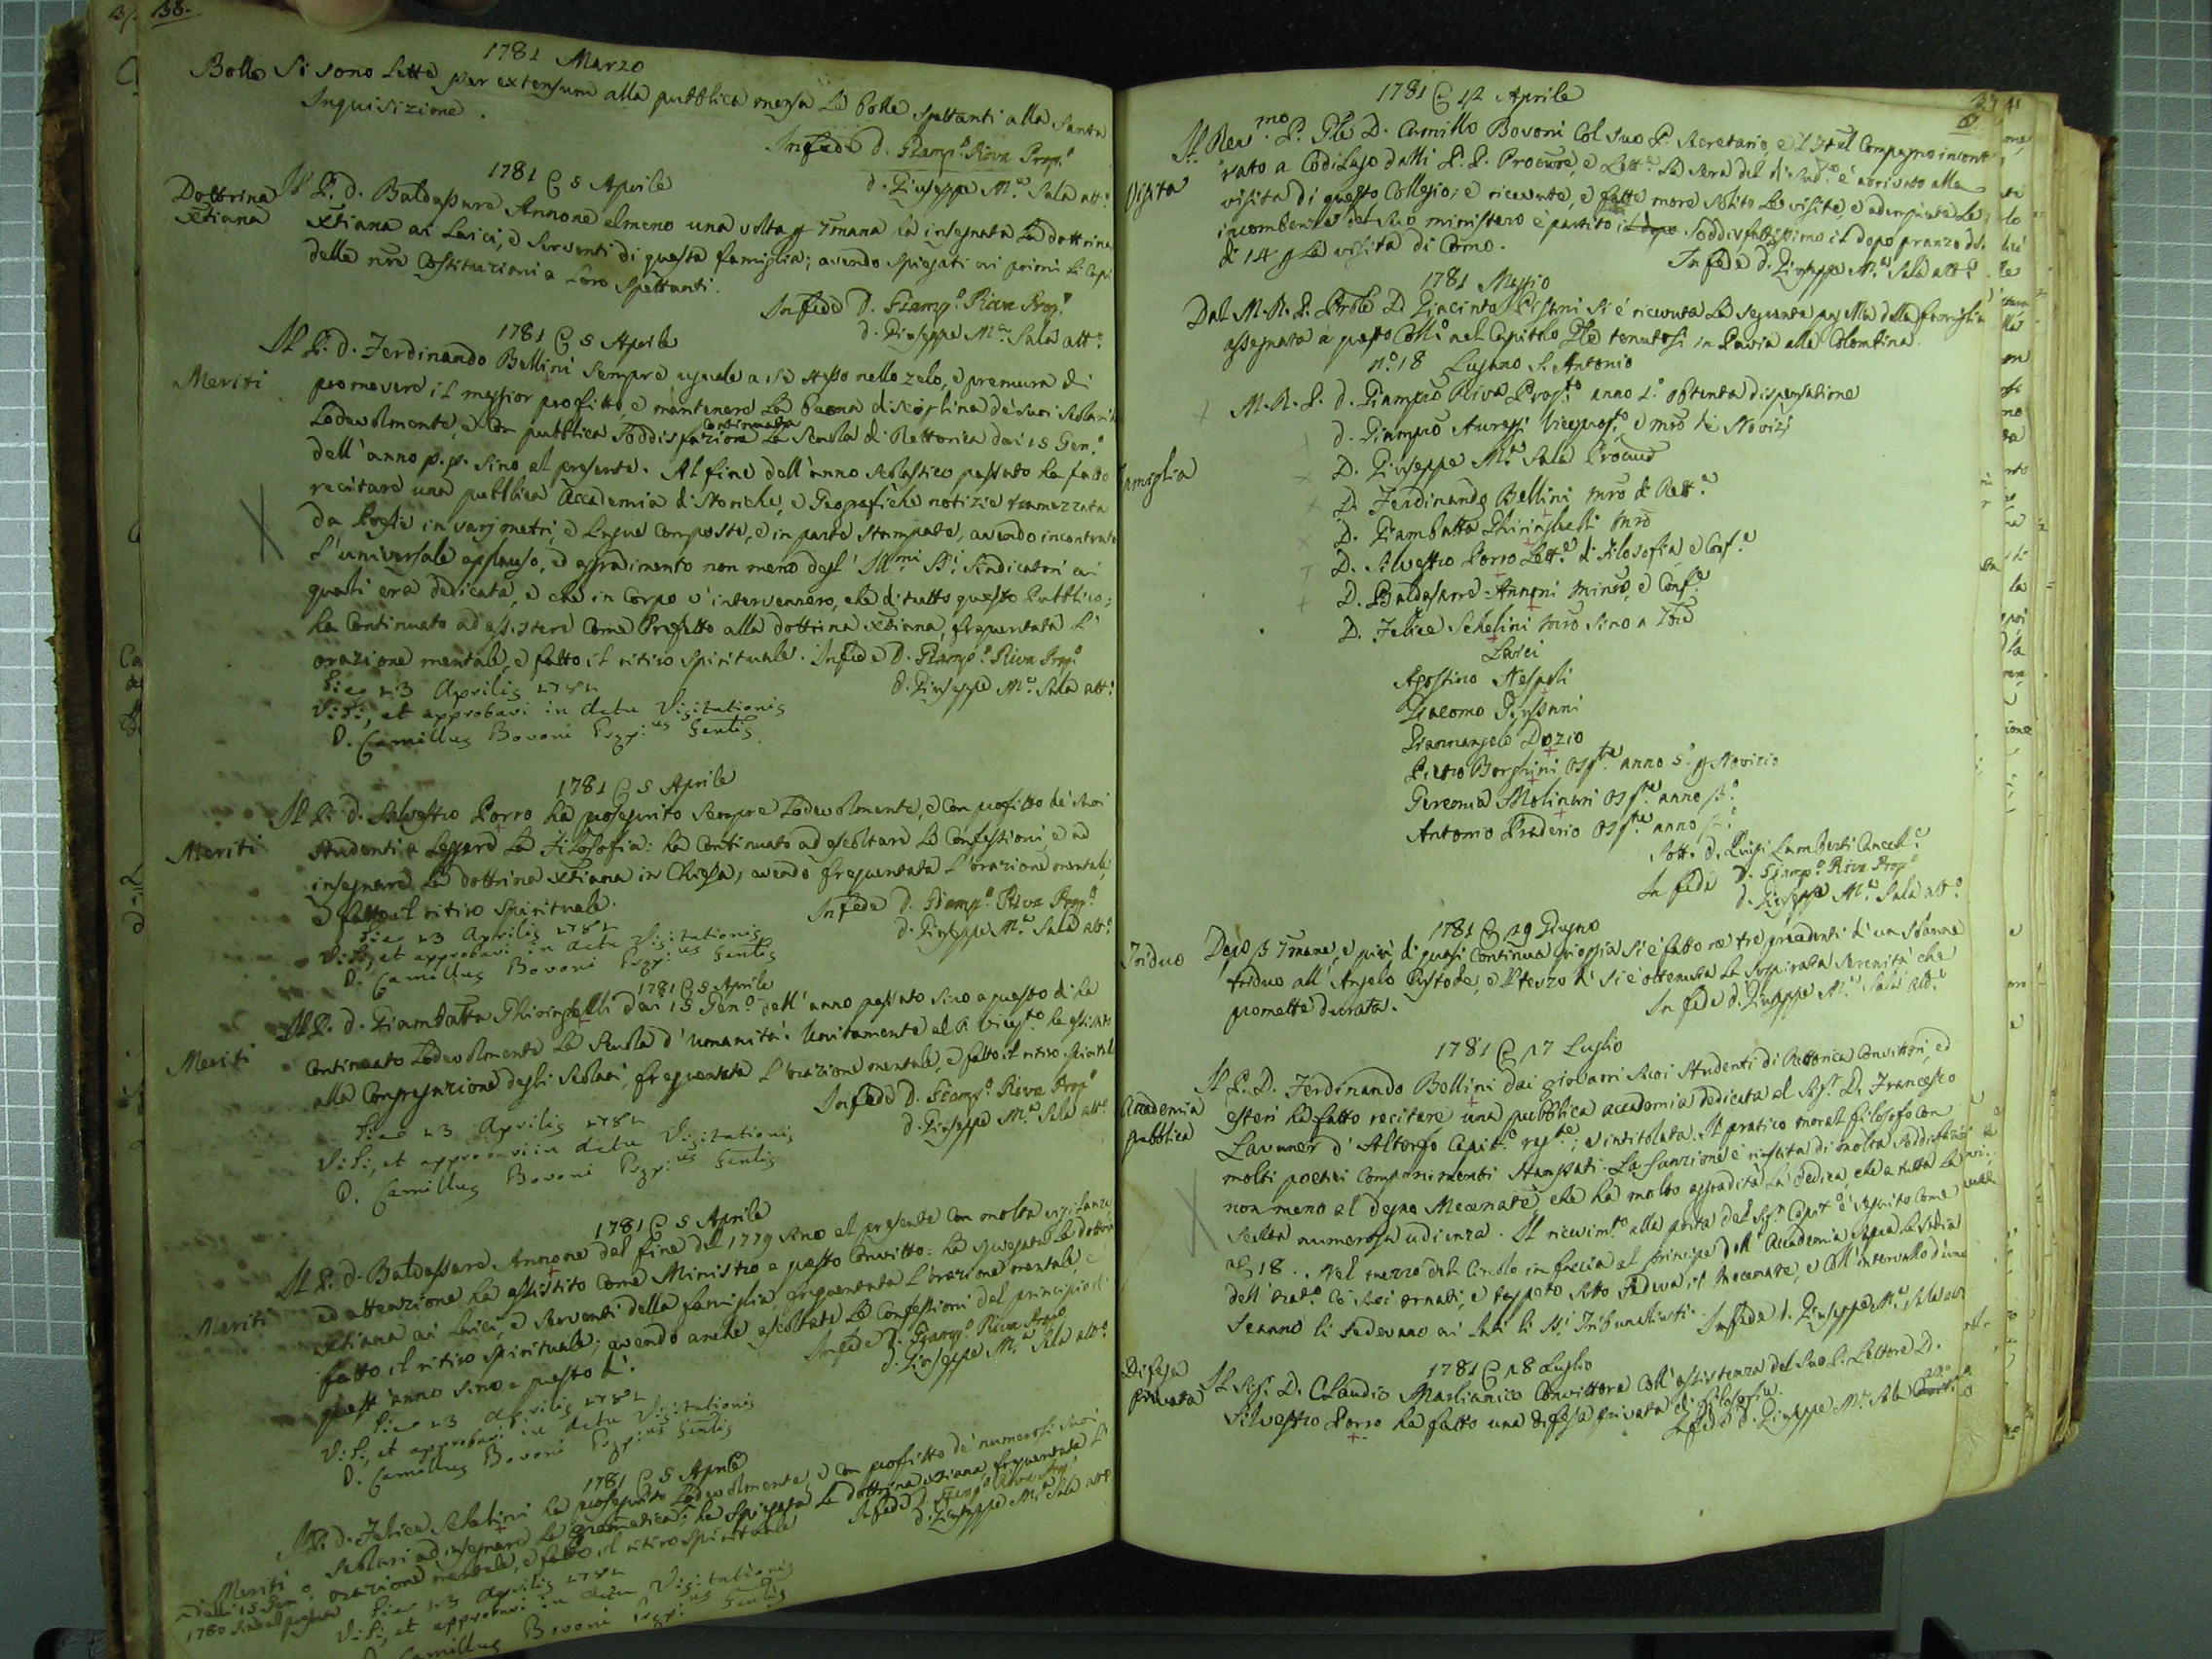 38.
1781 Marzo
Bolle Si sono Lette per extensum alla pubblica mensa Le Bolle Spettanti alla Santa
Inquisizione.
In fede D. Giamp.o Riva Prep.o
d. Giuseppe M.a Sala att.o
1781 5 Aprile
Dottrina Xtiana
Il P. d. Baldassare Annone almeno una volta Tmana ha insegnata La dottrina
Xtiana ai Laici, e Serventi di questa famiglia; avendo Spiegati ai primi Li Capi
delle nre Costituzioni a Loro Spettanti.
In fede D. Giamp.o Riva Prep.o
d. Giuseppe M.a Sala att.o
1781 5 Aprile
Meriti
Il P. d. Ferdinando Bellini Sempre uguale a se stesso nello zelo, e premura di
promovere il maggior profitto, e mantenere La buona disciplina de' suoi Scolari
Lodevolmente, e con pubblica Soddisfazione continuata La Scuola di Rettorica dai 15 Gen.o
dell'anno p.p. sino al presente. Al fine dell'anno Scolastico passato ha fatto
recitare una pubblica Accademia di Storiche, e Geografiche notizie tramezzata
da Poesie in varj metri, e Lingue composte, e in parte Stampate, avendo incontrato
L'universale applauso, e aggradimento non meno degl' Ill.mi SS.i Sindicatori ai
quali era dedicata, e che in Corpo v'intervennero, che di tutto questo Pubblico;
ha Continuato ad assistere Come Prefetto alla dottrina Xtiana, frequentata L'
orazione mentale, e fatto il ritiro Spirituale. In fede D. Giamp.o Riva Prep.o
d. Giuseppe M.a Sala att.o
Die 13 Aprilis 1781
Vidi, et approbavi in actu Visitationis
D. Camillus Bovoni Prep.us Gen.lis
1781 5 Aprile
Meriti
Il P. d. Silvestro Porro ha proseguito Sempre Lodevolmente, e con profitto de' Suoi
Studenti a Leggere La Filosofia: ha Continuato ad ascoltare Le Confessioni, e ad
insegnare La dottrina Xtiana in Chiesa, avendo frequentata L'orazione mentale,
e fatto il ritiro Spirituale.
In fede D. Giamp.o Riva Prep.o
d. Giuseppe M.a Sala att.o
Die 13 Aprilis 1781
Vidi, et approbavi in actu Visitationis
D. Camillus Bovoni Prep.us Gen.lis
1781 5 Aprile
Meriti
Il P. d. Giambatta Ghiringhelli dai 15 Gen.o dell'anno passato Sino a questo dì ha
Continuato Lodevolmente La Scuola d'Umanità. Unitamente al P. Vicep.to ha assistito
alla Congregazione degli Scolari, frequentata L'orazione mentale, e fatto il ritiro Spirituale
In fede D. Giamp.o Riva Prep.o
d. Giuseppe M.a Sala att.o
Die 13 Aprilis 1781
Vidi, et approbavi in actu Visitationis
D. Camillus Bovoni Prep.us Gen.lis
1781 5 Aprile
Meriti
Il P. d. Baldassare Annone dal fine del 1779 sino al presente Con molta vigilanza,
ed attenzione ha assistito Come Ministro a questo Convitto: ha Spiegata La dottrina
Xtiana ai Laici, e Serventi della famiglia, frequentata L'orazione mentale, e
fatto il ritiro Spirituale; avendo anche ascoltate Le Confessioni dal principio di
quest'anno sino a questo dì.
In fede D. Giamp.o Riva Prep.o
d. Giuseppe M.a Sala att.o
Die 13 Aprilis 1781
Vidi, et approbavi in actu Visitationis
D. Camillus Bovoni Prep.us Gen.lis
1781 5 Aprile
Meriti
Il P. d. Felice Schelini ha proseguito Lodevolmente, e con profitto de' numerosi Suoi
Scolari ad insegnare La gramatica; ha Spiegata La dottrina Xtiana frequentata L'
orazione mentale, e fatto il ritiro Spirituale
In fede D. Giamp.o Riva Prep.o
d. Giuseppe M.a Sala att.o
dalli 15 Gen.o
1780 Sino al presente
Die 13 Aprilis 1781
Vidi, et approbavi in actu Visitationis
D. Camillus Bovoni Prep.us Gen.lis
1781 12 Aprile
Visita
Il Rev.mo P. Gle D. Camillo Bovoni Col suo P. Secretario, e Compagno incont
rato a Codilago dalli P. P. Procure, e Lett.e La sera del dì Sud.o è arrivato alla
visita di questo Collegio; e ricevute, e fatte more solito Le visite, e adempiute Le
incombenze del Suo ministero è partito il dopo Soddisfattissimo il dopo pranzo del
dì 14 La visita di Como.
In fede d. Giuseppe M.a Sala att.o
1781 Maggio
Dal M. R. P. Prole D. Giacinto Pisani Si è ricevuta La Seguente pagella della famiglia
assegnata a questo Coll.o nel Capitolo Gle tenutosi in Pavia alla Colombina.
n.o 18 Lugano S. Antonio
M. R. P. d. Giampro Riva Prep.to anno 1.o obtenta dispensatione
Famiglia
d. Giampro Auregi Viceprep.to e mro de Novizj
D. Giuseppe M.a Sala Procure
D. Ferdinando Bellini mro di Rett.a
D. Giambatta Ghiringhelli mro
D. Silvestro Porro Lett.e di Filosofia, e Conf.e
D. Baldasarre Annoni Minro, e Conf.e
D. Felice Schelini mro Sino a
Laici
Agostino Nespoli
Giacomo Gussani
Giannangelo Dozio
Pietro Borghini Osp.te anno 5.o Novizio
Geremia Molinari Osp.te anno
Antonio Praderio Osp.te anno
Sott. D. Luigi Lamberti Cancell.e
In fede D. Giamp.o Riva Prep.o
d. Giuseppe M.a Sala att.o
1781 29 Giugno
Triduo
Dopo Tmane, e più di quasi Continua pioggia Si è fatto tre precedenti dì un Solenne
triduo all'Angelo Custode, e Il terzo dì Si è ottenuta La Sospirata Serenità che
promette durata.
In fede d. Giuseppe M.a Sala att.o
1781 17 Luglio
Accademia
pubblica
Il P. D. Ferdinando Bellini dai giovani Suoi Studenti di Rettorica Convittori, ed
esteri ha fatto recitare una pubblica accademia dedicata al Sig.r D. Francesco
Lavuner d'Altorfo Capit.o rag.te; e intitolata. Il pratico moral filosofo con
molti poetici Componimenti Stampati. La funzione è riuscita di molta Soddisfazio
non meno al degno Mecenate, che ha molto aggradita La dedica, che a tutta La
Scelta numerosa udienza. Il ricevim.to alla porta del Sig.r Capit.o è seguito Come
18. Nel mezzo del Circolo in faccia al Principe dell'Accademia Sopra La Sedia
dell'orat.o Co' Suoi ornati, e tappeto Sotto Sedeva il Mecenate, e Coll'intervallo d'uno
Scanno li Sedevano ai Lati li SS.i Tribunalisti. In fede d. Giuseppe M.a Sala att.o
1781 18 Luglio
Difesa
Privata
Il Sig.r D. Claudio Marlianico Convittore Coll'assistenza del Suo P. Lettore D.
Silvestro Porro ha fatto una difesa privata di filosofia.
In fede d. Giuseppe M.a Sala att.o